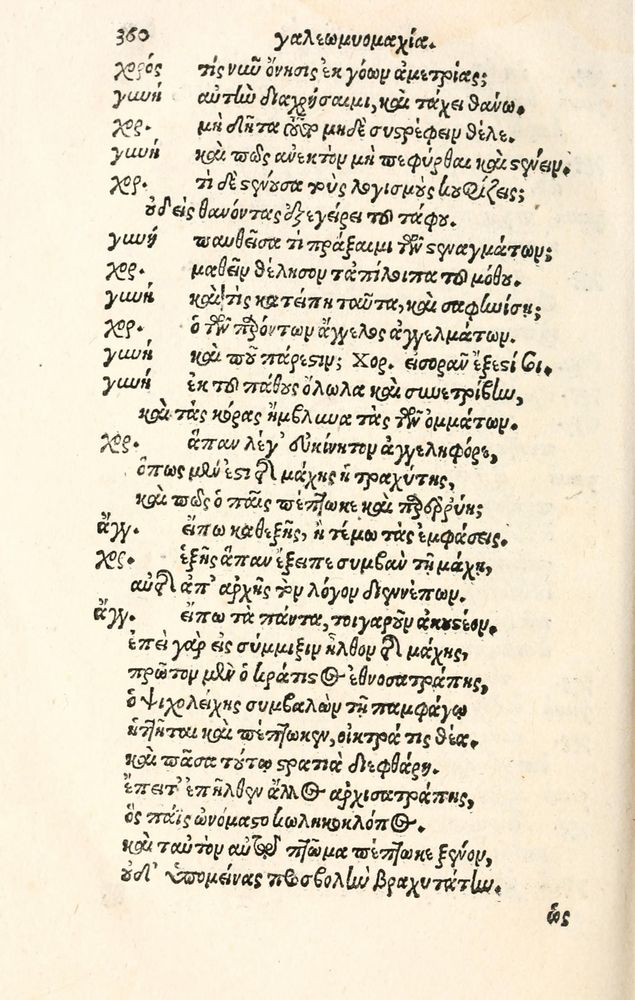 360 γαλεωμυομαχία.
χορός τίς νοῦν ὄνησις ἐκ γόων ἀμετρίας;
γυνή αὐτὴν διαχρήσαιμι, καὶ τάχει θάνω.
χορ. μὴ δῆτα μηδὲ συστρέφειν θέλε.
γυνή καὶ πῶς ἀνεκτὸν μὴ πεφύρθαι καὶ στένειν.
χορ. τί δὲ στένουσα τοὺς λογισμοὺς κουφίζεις;
οὐδεὶς θανόντας ἐξεγείρει τοῦ τάφου.
γυνή παυθεῖσα τί πράξαιμι τῶν στεναγμάτων;
χορ. μαθεῖν θέλησον τἀπίλοιπα τοῦ μόθου.
γυνή καὶ τίς κατείπῃ ταῦτα, καὶ σαφηνίσῃ;
χορ. ὁ τῶν παρόντων ἄγγελος ἀγγελμάτων.
γυνή καὶ ποῦ πάρεστιν; Χορ. εἰσορᾶν ἔξεστί σοι.
γυνή ἐκ τοῦ πάθους ὄλωλα καὶ συνετρίβην,
καὶ τὰς κόρας ἤμβλυνα τὰς τῶν ὀμμάτων.
χορ. ἅπαν λέγ' εὐκίνητον ἀγγεληφόρε,
ὅπως μὲν ἐστὶ τῆς μάχης ἡ τραχύτης,
καὶ πῶς ὁ παῖς πέπτωκε καὶ προερρύη;
ἄγγ. εἴπω καθεξῆς, ἢ τέμω τὰς ἐμφάσεις.
χορ. ἑξῆς ἅπαν ἔξειπε συμβὰν τῇ μάχῃ,
αὐτῆς ἀπ' ἀρχῆς τὸν λόγον διεννέπων.
ἄγγ. εἴπω τὰ πάντα, τοιγαροῦν ἀκουστέον.
ἐπεὶ γὰρ εἰς σύμμιξιν ἦλθον τῆς μάχης,
πρῶτον μὲν ὁ κράτιστος ἐθνοσατράπης,
ὁ ψιχολείχης συμβαλὼν τῇ παμφάγῳ
ἥττηται καὶ πέπτωκεν, οἰκτρά τις θέα.
καὶ πᾶσα τούτῳ στρατιὰ διεφθάρη.
ἔπειτ' ἐπῆλθεν ἄλλος ἀρχισατράπης,
ὃς παῖς ὠνόμαστο κωληκοκλόπος.
καὶ ταὐτὸν αὐτοῦ πτῶμα πέπτωκε ξένον,
οὐδ' ὑπομείνας προσβολὴν βραχυτάτην.
ὡς